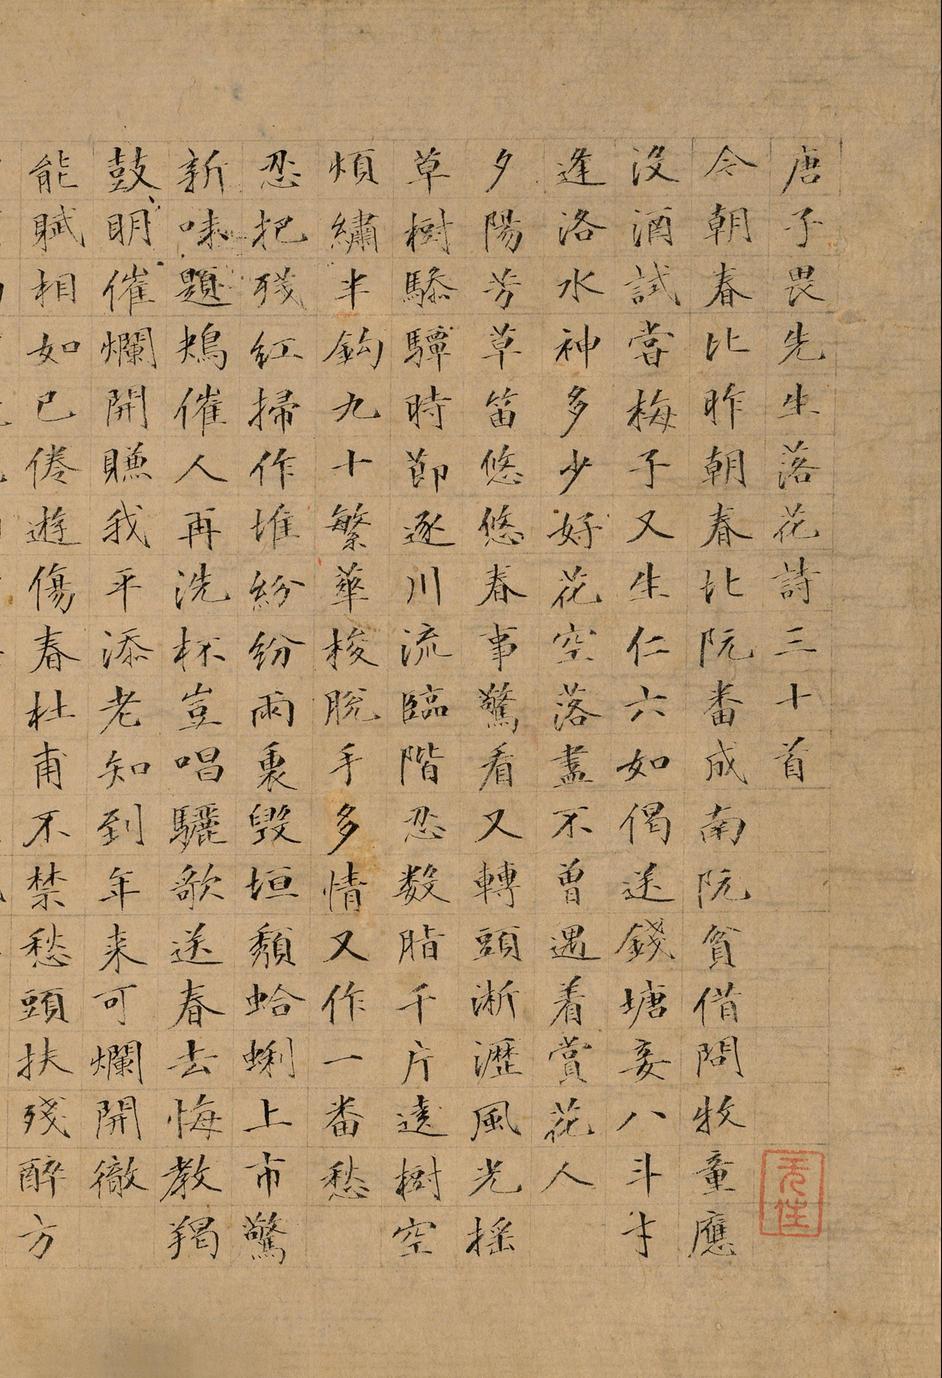 唐子畏先生落花詩三十首
今朝春比昨朝春北阮番成南阮貧借問牧童應
沒酒試嘗梅子又生仁六如偈送錢塘妾八斗才
逢洛水神多少好花空落盡不曾遇着賞花人
夕陽芳草笛悠悠春事驚看又轉頭淅瀝風光搖
草樹驂驔時節逐川流臨階忍數脂千片遶樹空
煩繡半鉤九十繁華梭脫手多情又作一番愁
忍把殘紅掃作堆紛紛雨裏毀垣頹蛤蜊上市驚
新味鶗鴂催人再洗杯豈唱驪歌送春去悔教羯
鼓明催爛開賺我平添老知到年来可爛開徹
能賦相如已倦遊傷春杜甫不禁愁頭扶殘醉方